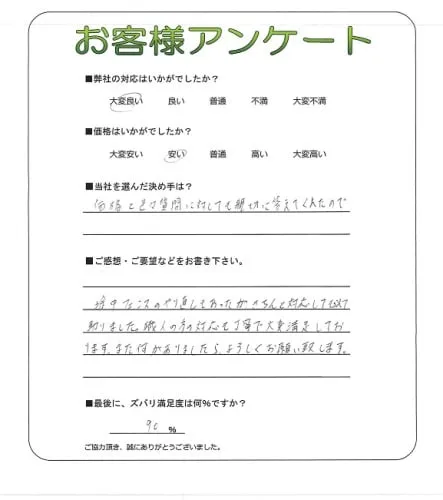 お客様アンケート
■弊社の対応はいかがでしたか？
大変良い 良い 普通 不満 大変不満
■価格はいかがでしたか？
大変安い 安い 普通 高い 大変高い
■当社を選んだ決め手は？
価格と 質問に対しても親切に答えてくれたので
■ご感想・ご要望などをお書き下さい。
途中 のやり直しもあったが きちんと対応して頂て
助りました。職人の方の対応も丁寧で大変満足してお
ります。また何かありましたら、よろしくお願い致します。
■最後に、ズバリ満足度は何%ですか？
90 %
ご協力頂き、誠にありがとうございました。